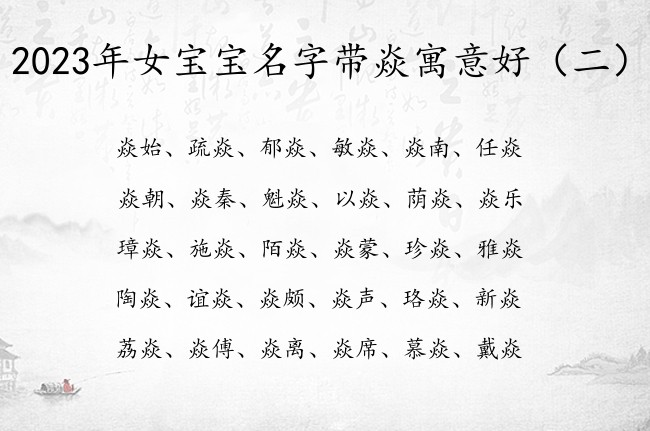 2023年女宝宝名字带焱寓意好（二）
焱始、疏焱、郁焱、敏焱、焱南、任焱
焱朝、焱秦、魁焱、以焱、荫焱、焱乐
璋焱、施焱、陌焱、焱蒙、珍焱、雅焱
陶焱、谊焱、焱颇、焱声、珞焱、新焱
荔焱、焱傅、焱离、焱席、慕焱、戴焱